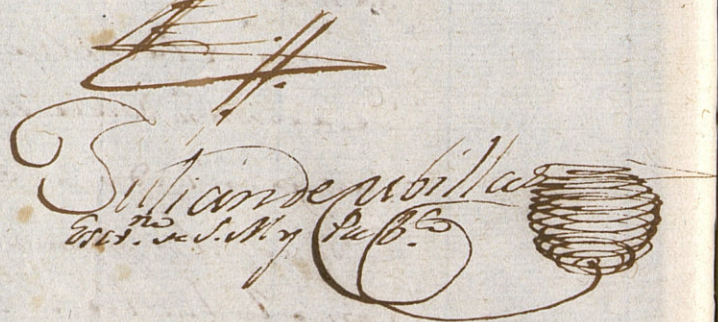 Julian de Cubillas
Escr.no de S. M. y Pub.co